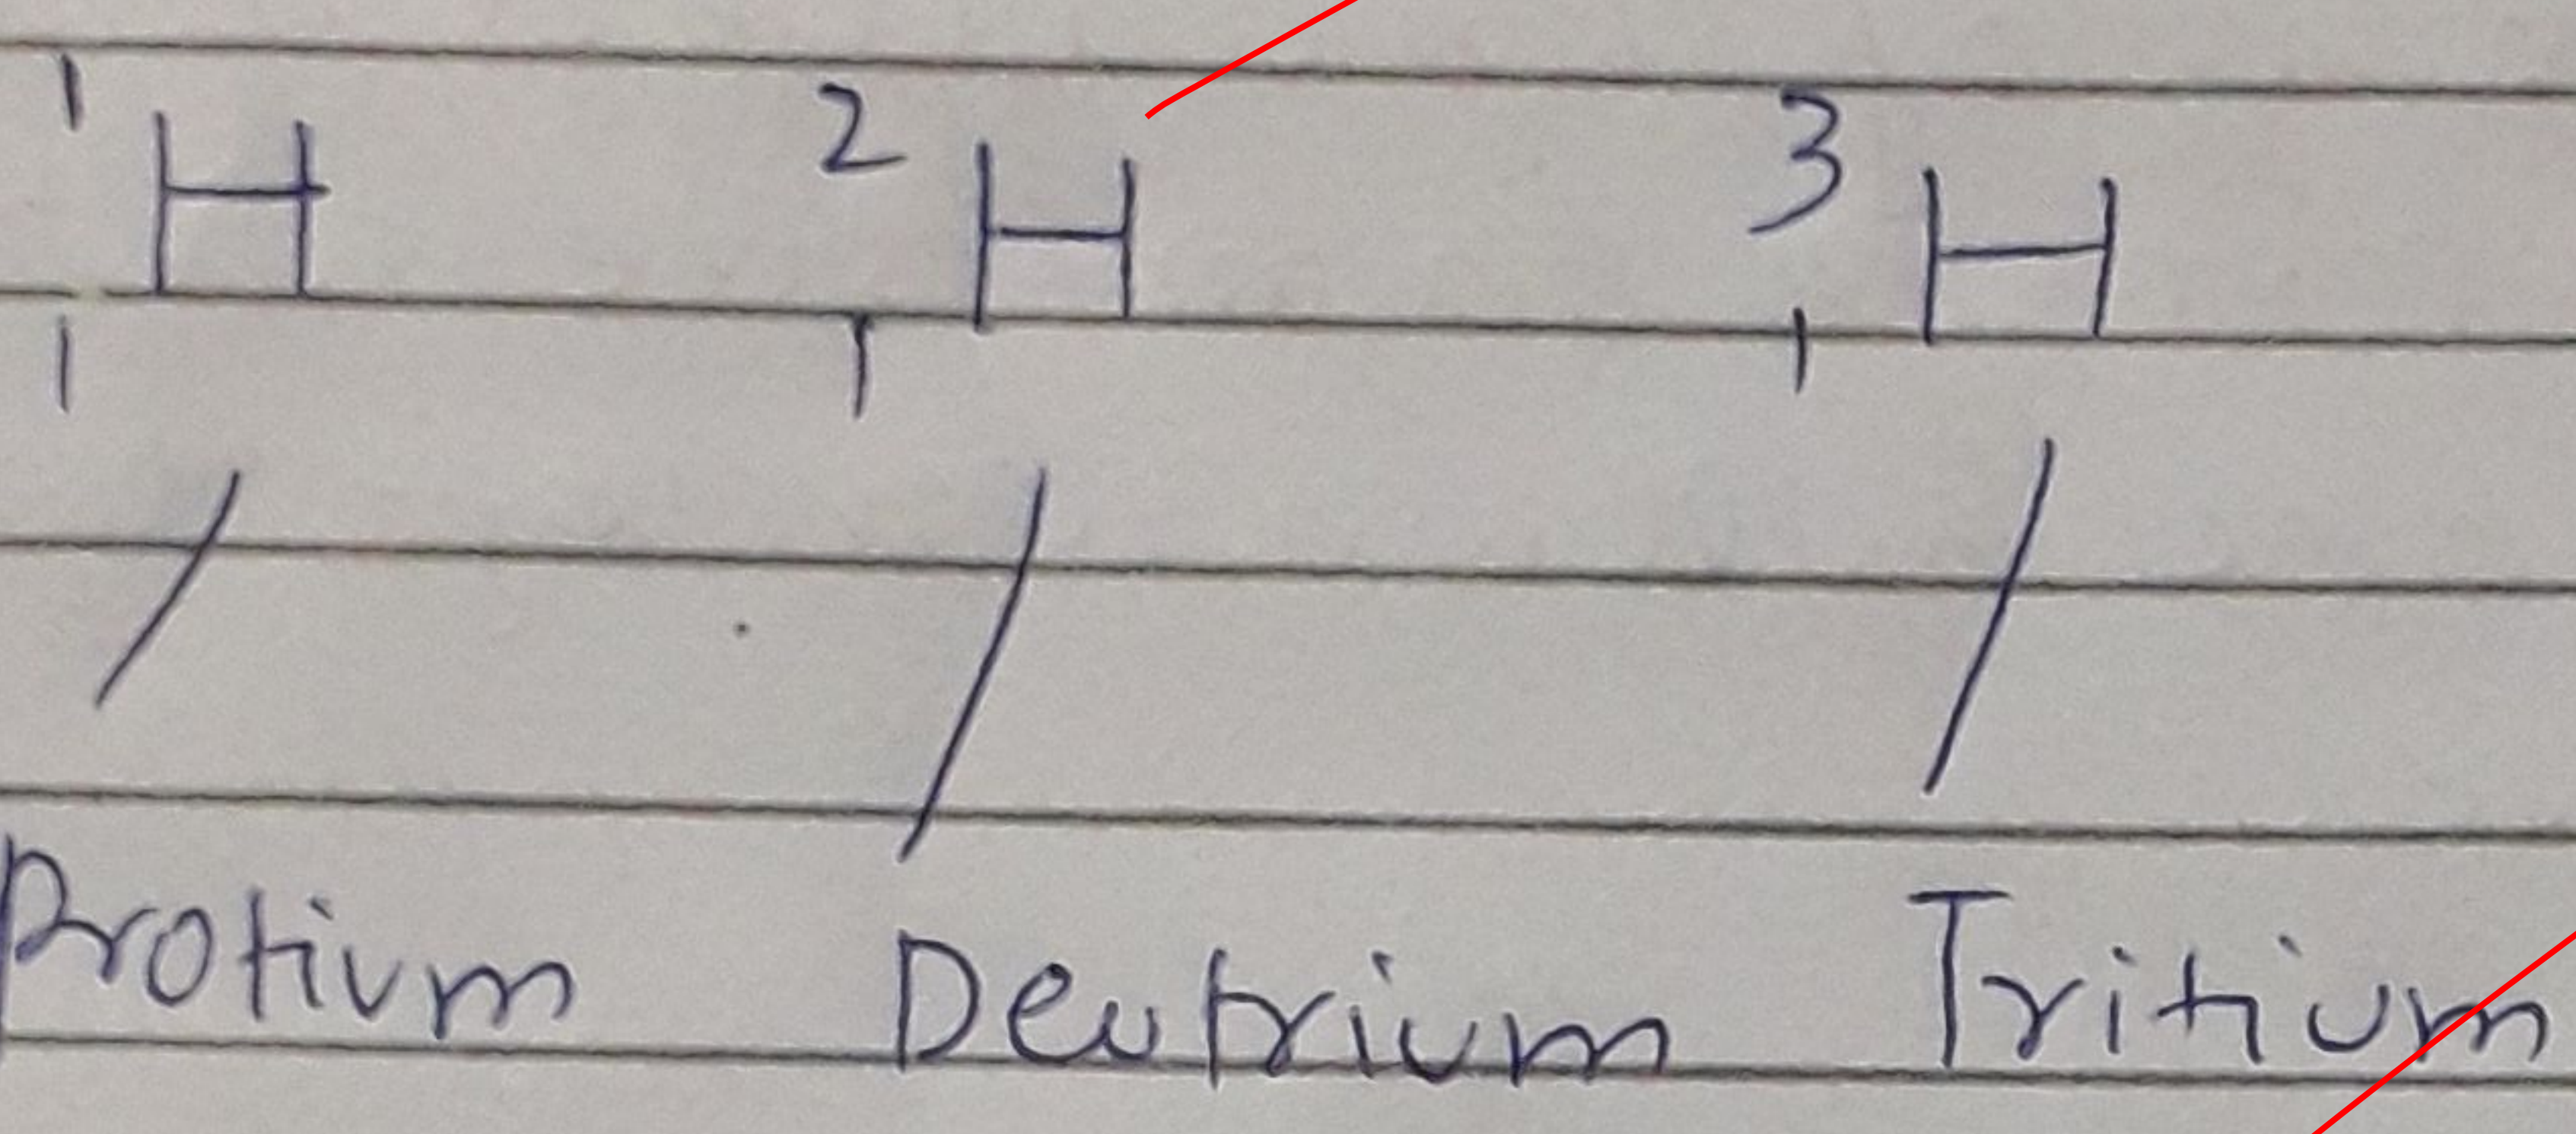 ¹₁H ²₁H ³₁H
Protium Deutrium Tritium